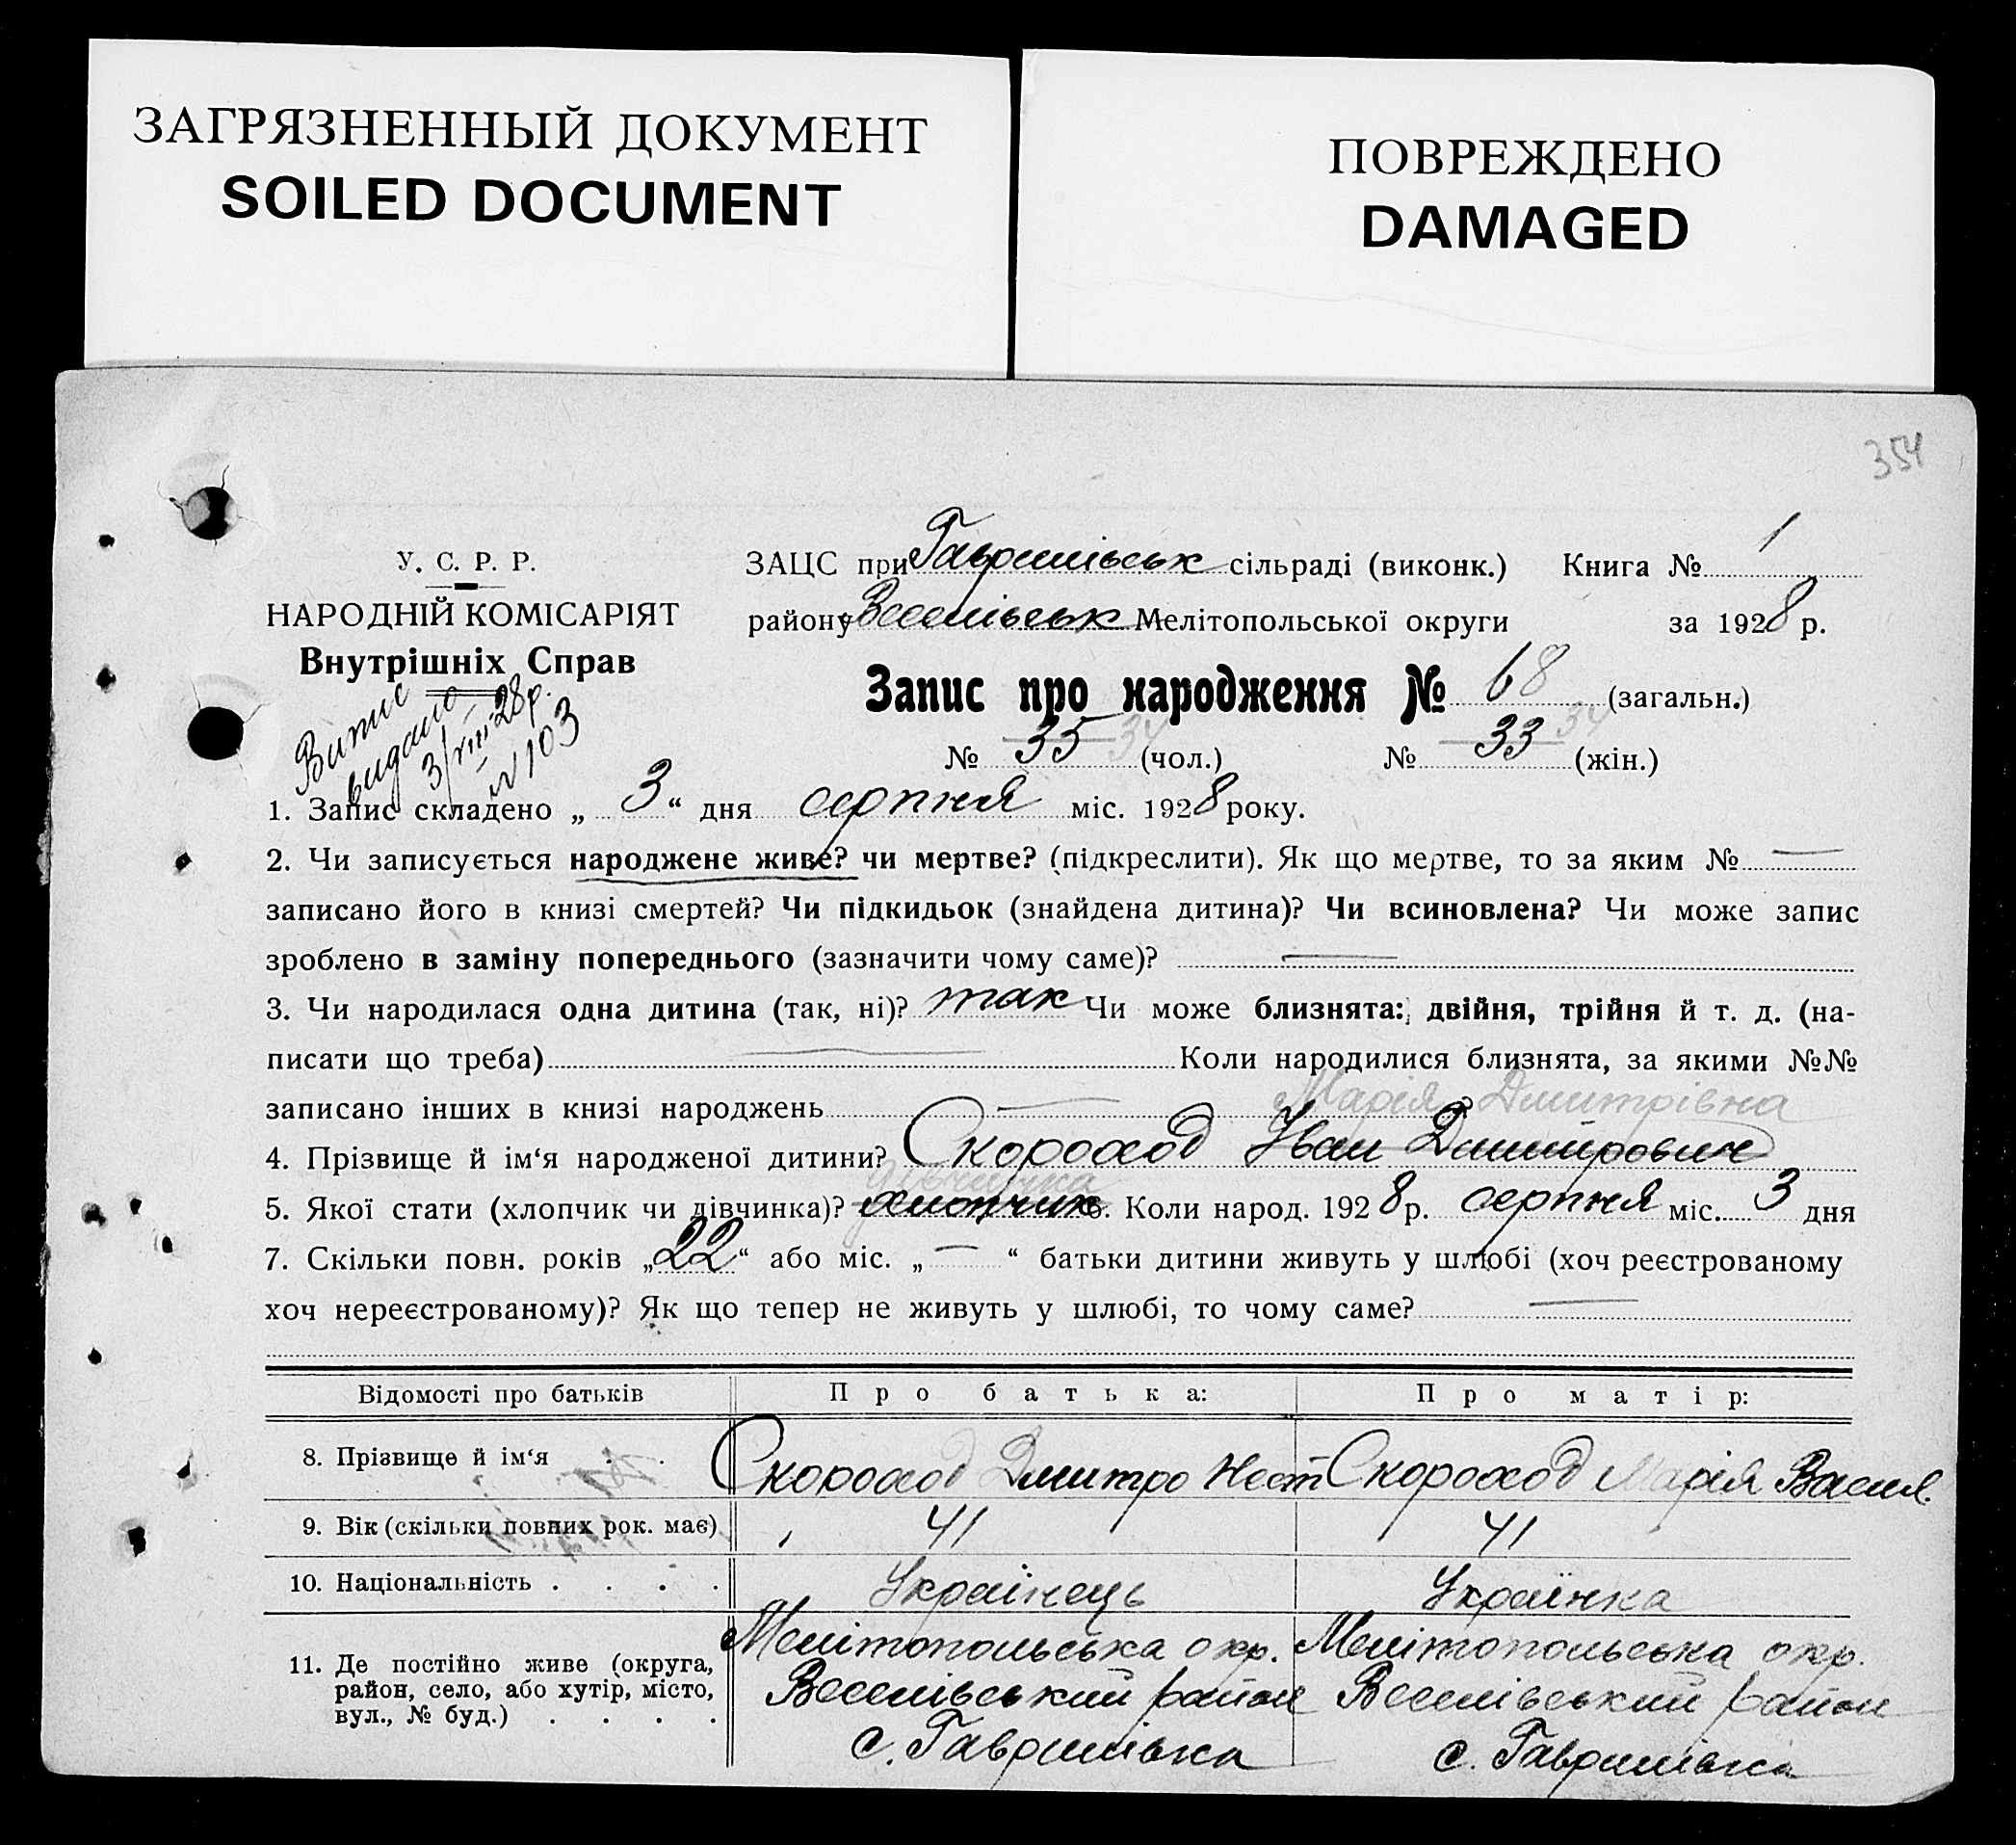 ЗАГРЯЗНЕННЫЙ ДОКУМЕНТ
SOILED DOCUMENT
ПОВРЕЖДЕНО
DAMAGED
354
У. С. Р. Р.
НАРОДНІЙ КОМІСАРІЯТ
Внутрішніх Справ
Витис
видано
3/VIII 28р.
№ 103
ЗАЦС при Гаврилівськ сільраді (виконк.) Книга № 1
району Веселівськ Мелітопольської округи за 1928 р.
Запис про народження № 68 (загальн.)
№ 35 34 (чол.) № 33 34 (жін.)
1. Запис складено „ 3 “ дня серпня міс. 1928 року.
2. Чи записується народжене живе? чи мертве? (підкреслити). Як що мертве, то за яким № —
записано його в книзі смертей? Чи підкидьок (знайдена дитина)? Чи всиновлена? Чи може запис
зроблено в заміну попереднього (зазначити чому саме)? —
3. Чи народилася одна дитина (так, ні)? так Чи може близнята: двійня, трійня й т. д. (на-
писати що треба) — Коли народилися близнята, за якими №№
записано інших в книзі народжень — ?
Марія Дмитрівна
4. Прізвище й ім‘я народженої дитини? Скороход Іван Дмитрович
дівчинка
5. Якої стати (хлопчик чи дівчинка)? хлопчик 6. Коли народ. 1928 р. серпня міс. 3 дня
7. Скільки повн. років „22“ або міс. „ — “ батьки дитини живуть у шлюбі (хоч реєстрованому
хоч нереєстрованому)? Як що тепер не живуть у шлюбі, то чому саме? —
Відомості про батьків Про батька: Про матір:
8. Прізвище й ім‘я . . Скороход Дмитро Нест Скороход Марія Васил.
9. Вік (скільки повних рок. має) 41 41
10. Національність . . . . Українець Українка
11. Де постійно живе (округа, район, село, або хутір, місто, вул., № буд.) . . . .
Мелітопольська окр. Мелітопольська окр.
Веселівський район Веселівський район
с. Гаврилівка с. Гаврилівка